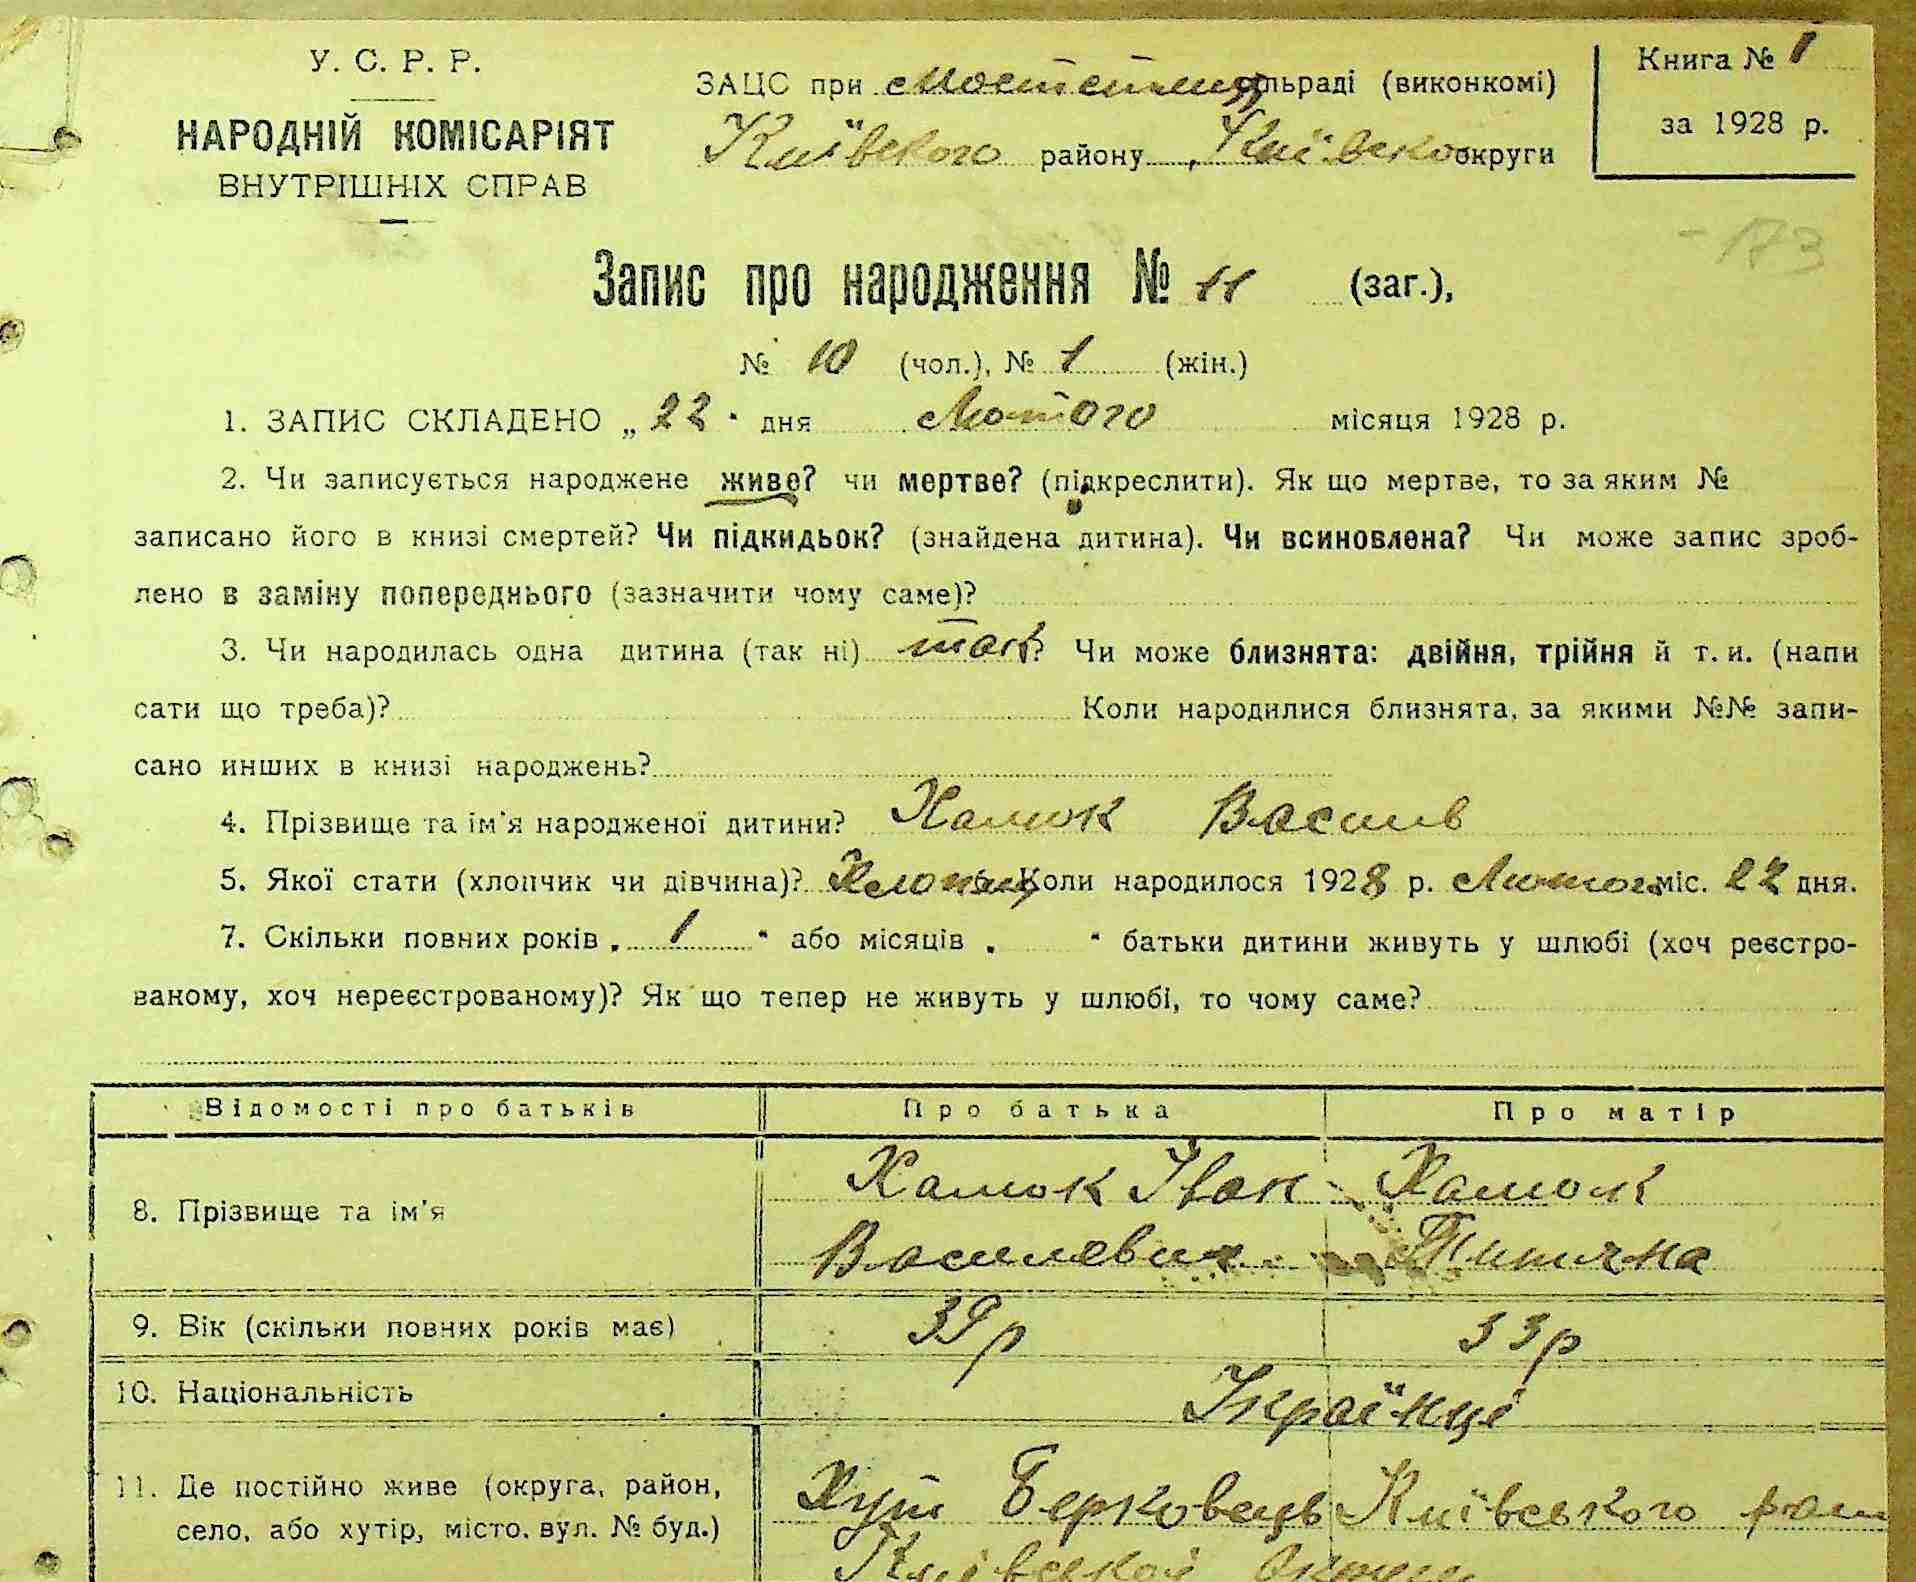 У. С. Р. Р.
НАРОДНІЙ КОМІСАРІЯТ
ВНУТРІШНІХ СПРАВ
ЗАЦС при сільраді (виконкомі)
Київского району Київско округи
Книга № 1
за 1928 р.
-173
Запис про народження № 11 (заг.),
№ 10 (чол.), № 1 (жін.)
1. ЗАПИС СКЛАДЕНО „22" дня Лютого місяця 1928 р.
2. Чи записується народжене живе? чи мертве? (підкреслити). Як що мертве, то за яким №
записано його в книзі смертей? Чи підкидьок? (знайдена дитина). Чи всиновлена? Чи може запис зроб-
лено в заміну попереднього (зазначити чому саме)?
3. Чи народилась одна дитина (так ні) так? Чи може близнята: двійня, трійня й т. и. (напи
сати що треба)? Коли народилися близнята, за якими №№ запи-
сано инших в книзі народжень?
4. Прізвище та ім'я народженої дитини? Хамок Василь
5. Якої стати (хлопчик чи дівчина)? Хлопець Коли народилося 1928 р. Лютого міс. 22 дня.
7. Скільки повних років „ 1 " або місяців „ " батьки дитини живуть у шлюбі (хоч реєстро-
ваному, хоч нереєстрованому)? Як що тепер не живуть у шлюбі, то чому саме?
Відомості про батьків Про батька Про матір
8. Прізвище та ім'я
Хамок Іван Хамок
Василевич
9. Вік (скільки повних років має) 39р 33р
10. Національність Українці
11. Де постійно живе (округа, район,
село, або хутір, місто, вул. № буд.)
Хут Берковець Київського рай
Київської округи